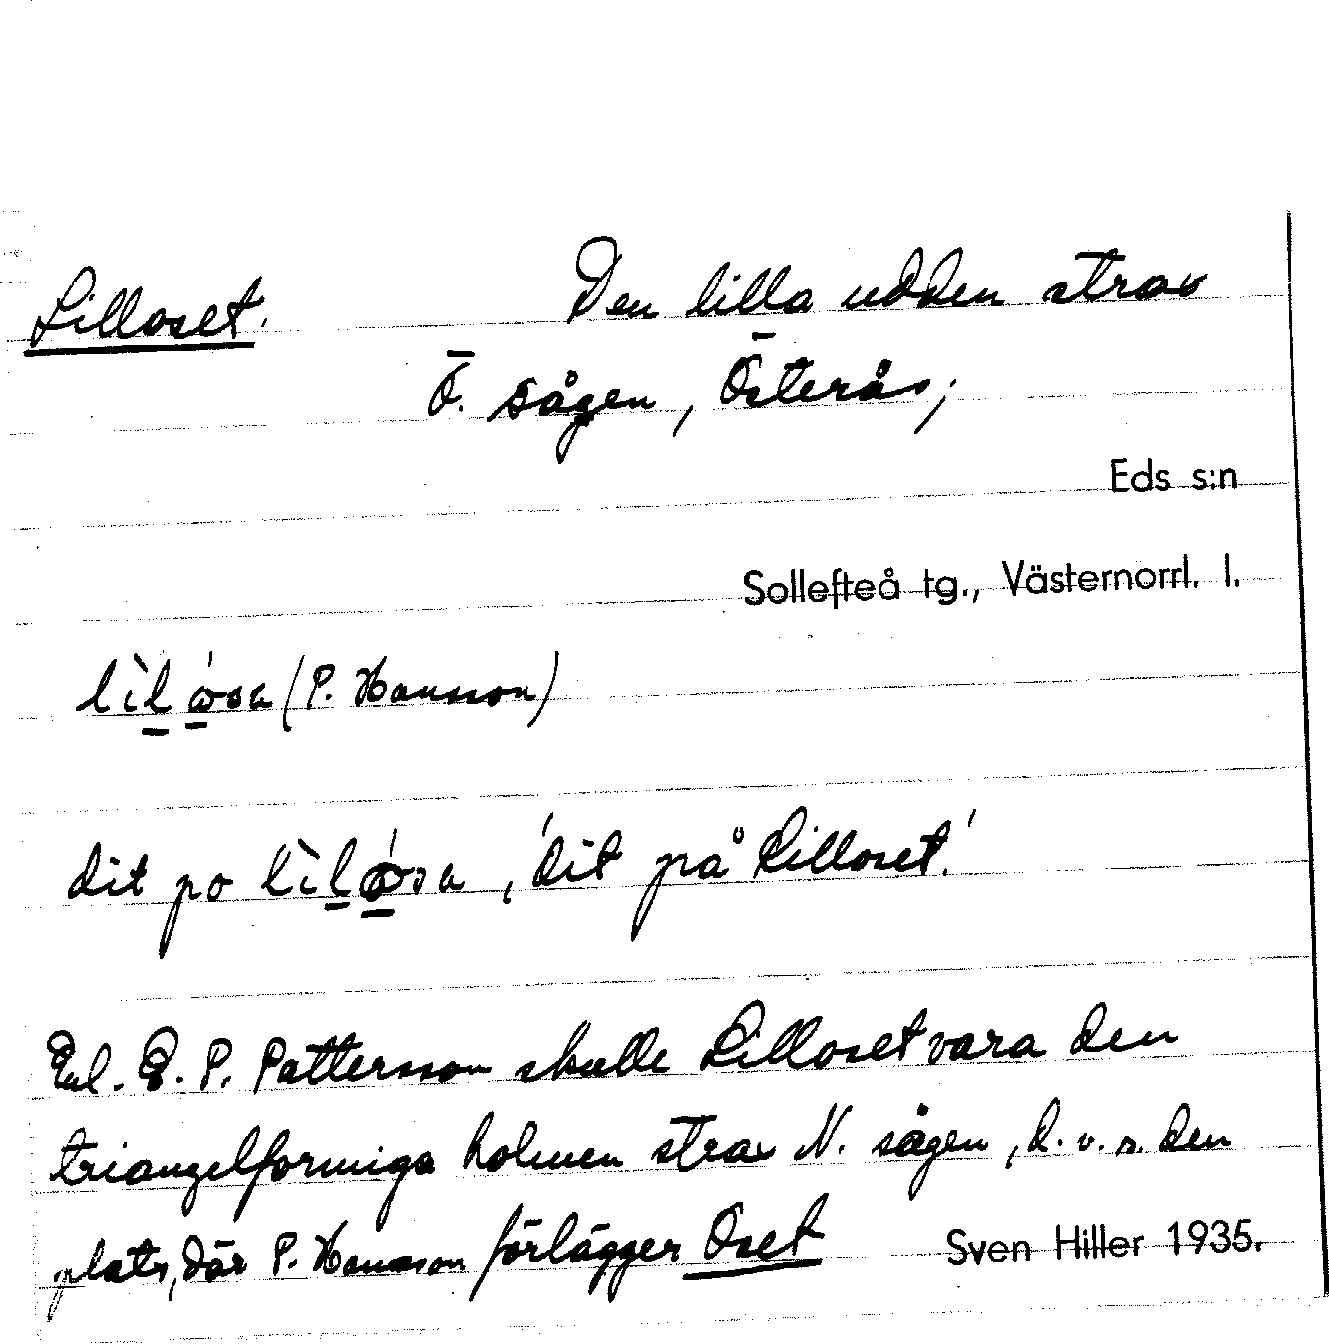 Lilloset. Den lilla udden strax
Ö. sågen, Österås;
Eds s:n
Sollefteå tg., Västernorrl. l.
(P. Hansson)
dit po , 'dit på Lilloset.'
Enl. E. P. Pattersson skulle Lilloset vara den
triangelformiga holmen strax N. sågen, d. v. s. den
plats, där P. Hansson förlägger Oset Sven Hiller 1935.